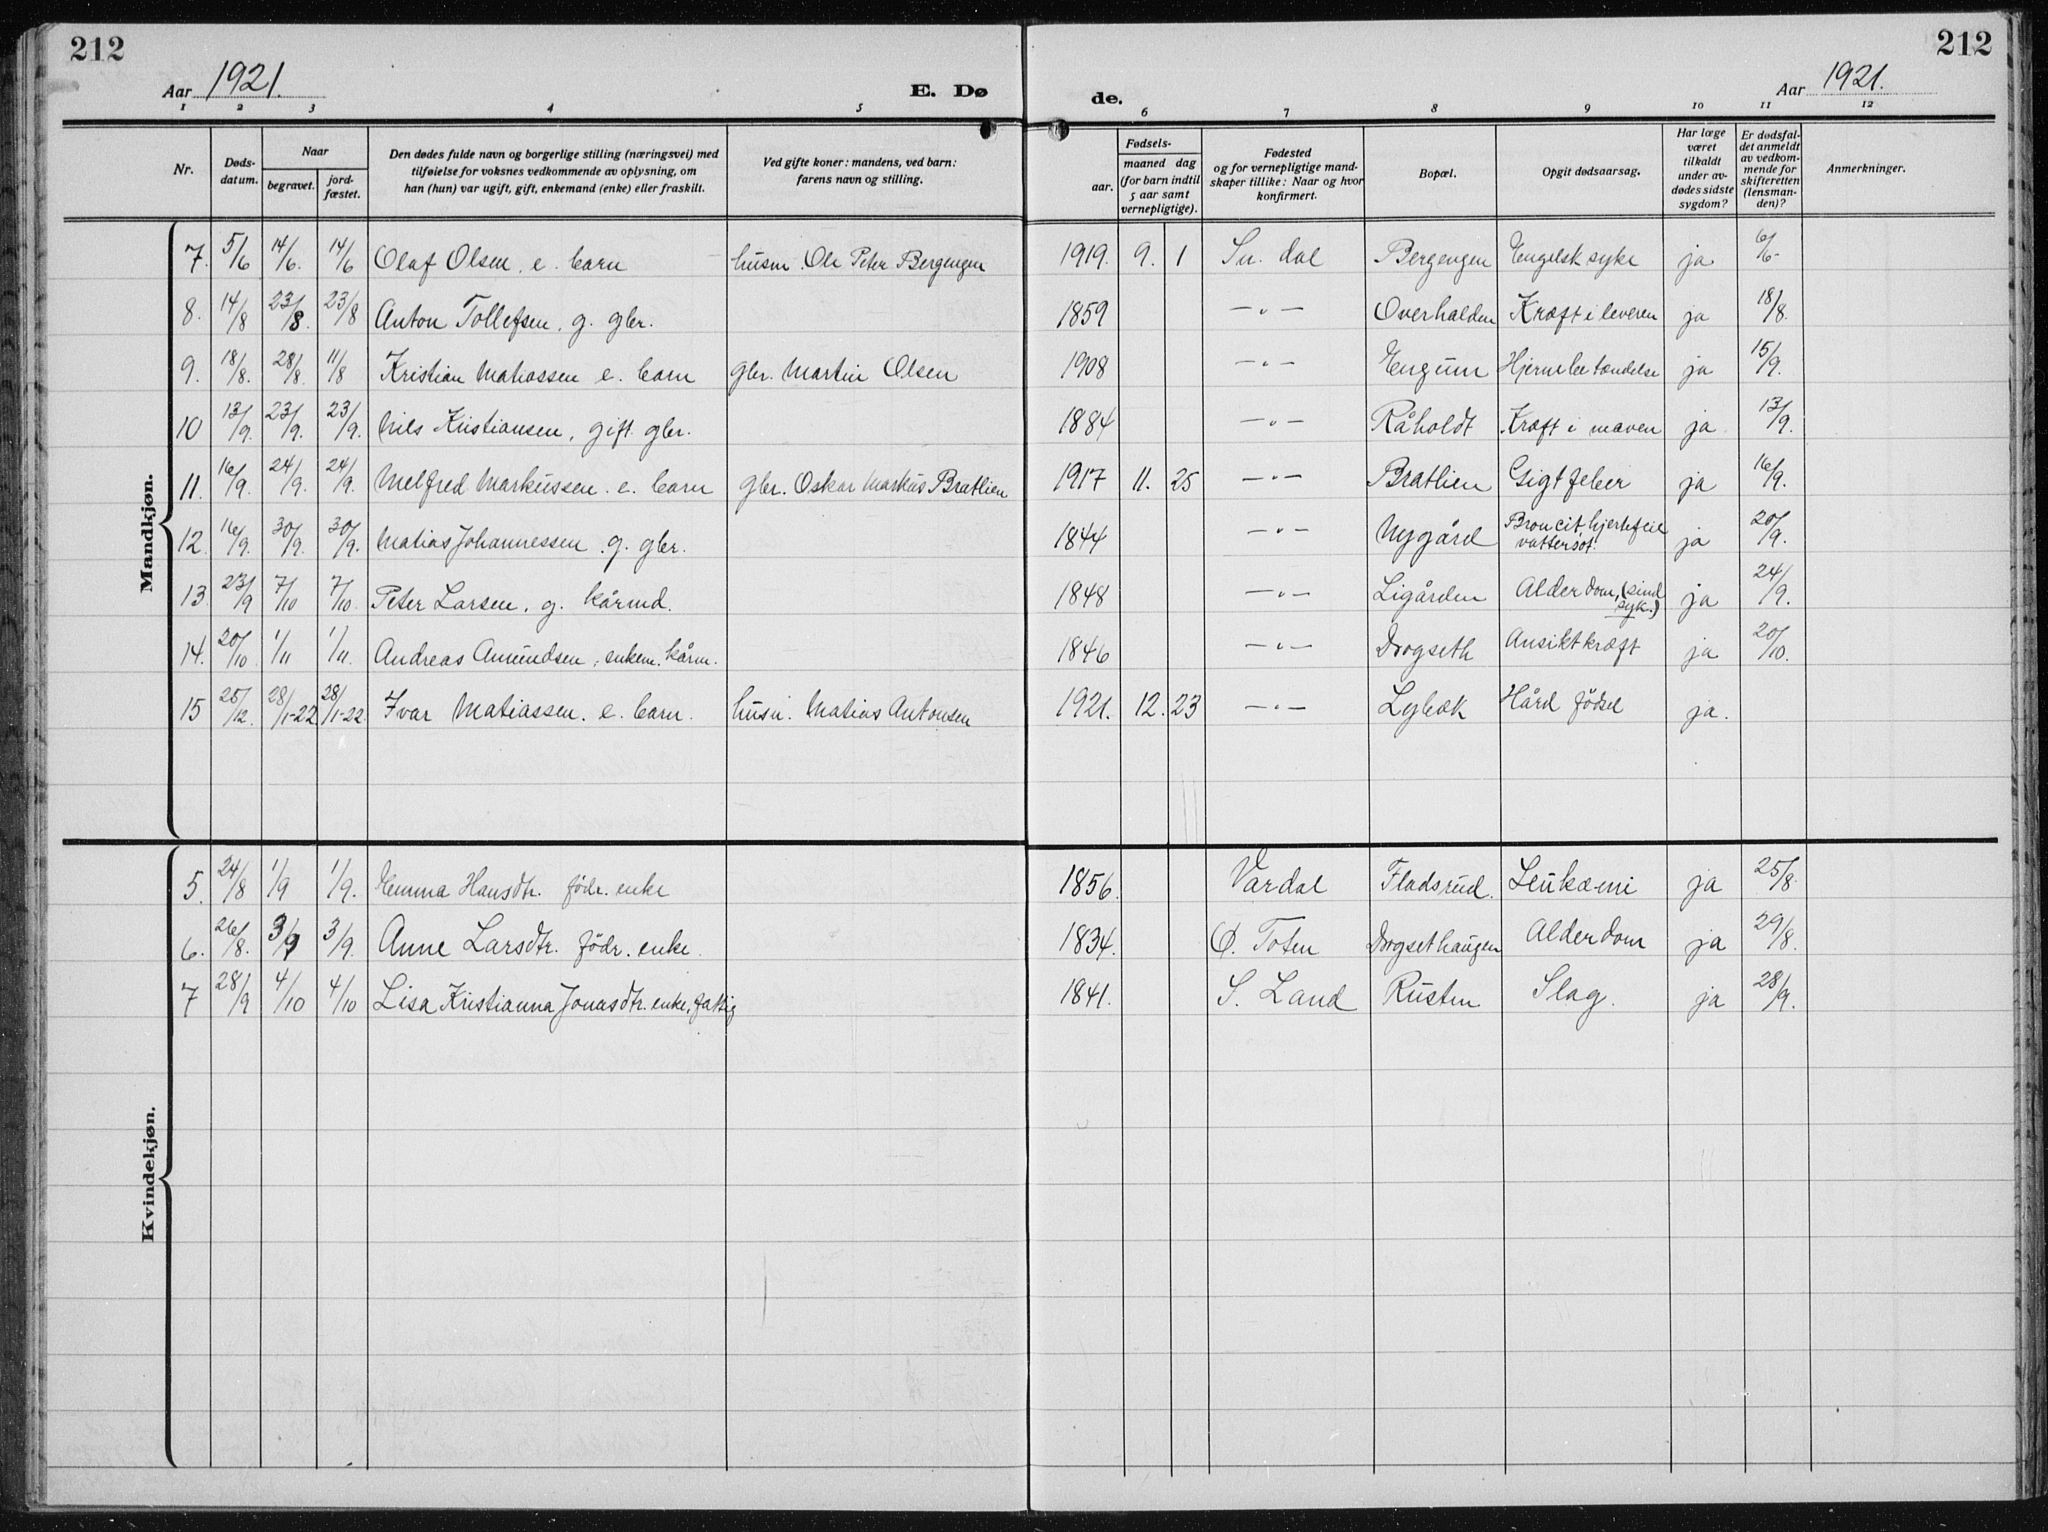 212
212
Aar 1921.
E. Dø
de.
Aar 1921.
1 2 3 4 5 6 7 8 9 10 11 12
Nr.
Døds-
datum.
Naar
begravet.
jord-
fæstet.
Den dødes fulde navn og borgerlige stilling (næringsvei) med
tilføielse for voksnes vedkommende av oplysning, om
han (hun) var ugift, gift, enkemand (enke) eller fraskilt.
Ved gifte koner: mandens, ved barn:
farens navn og stilling.
Fødsels-
aar.
maaned dag
(for barn indtil
5 aar samt
vernepligtige).
Fødested
og for vernepligtige mand-
skaper tillike: Naar og hvor
konfirmert.
Bopæl.
Opgit dødsaarsag.
Har læge
været
tilkaldt
under av-
dødes sidste
sygdom?
Er dødsfal-
det anmeldt
av vedkom-
mende for
skifteretten
(lensman-
den)?
Anmerkninger.
Mandkjøn.
7. 5/6 14/6. 14/6 Olaf Olsen, e. barn husm. Ole Peter Bergengen 1919. 9. 1 Sn. dal Bergengen Engelsk syke ja 6/6-
8. 14/8 23/8. 23/8 Anton Tollefsen, g. gbr. 1859 —„— Overhalden Kræft i leveren ja 18/8.
9. 18/8. 28/8. 11/8 Kristian Matiassen e. barn gbr. Martin Olsen 1908 —„— Engum Hjernebetændelse ja 15/9.
10 13/9. 23/9. 23/9. Nils Kristiansen, gift gbr. 1884 —„— Råholdt Kræft i maven ja 13/9.
11. 16/9. 24/9. 24/9. Melfred Markussen. e. barn gbr. Oskar Markus Bratlien 1917 11. 25 —„— Bratlien Gigtfeber ja 16/9.
12. 16/9. 30/9. 30/9. Matias Johannessen. g. gbr. 1844 —„— Nygård Broncit hjertefeil
vattersot. ja 20/9.
13 23/9 7/10 7/10. Peter Larsen, g. kårmd. 1848 —„— Ligården Alderdom, (sind
syk.) ja 24/9.
14. 20/10 1/11 1/11. Andreas Amundsen, enkem. kårm. 1846 —„— Drogseth Ansiktkræft ja 20/10.
15 25/12. 28/1-22 28/1-22. Ivar Matiassen. e. barn. husm. Matias Antonsen 1921. 12. 23 —„— Lybæk Hård fødsel ja.
Kvindekjøn.
5. 24/8 1/9 1/9. Emma Hansdtr. födr. enke 1856. Vardal Fladsrud. Leukæmi ja 25/8.
6. 26/8. 3/9 3/9. Anne Larsdtr. födr. enke. 1834. Ø. Toten Drogsethaugen Alderdom ja 29/8.
7 28/9 4/10 4/10 Lisa Kristianna Jonasdtr. enke, fattig 1841. S. Land Rusten Slag. ja 28/9.